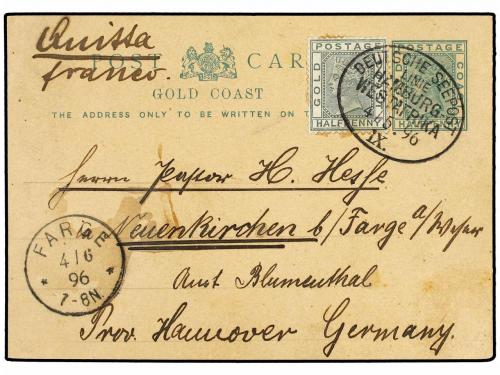 Quissa
franco.
POST CARD
GOLD COAST
THE ADDRESS ONLY TO BE WRITTEN ON T
POSTAGE
GOLD
HALFPENNY
POSTAGE
DEUTSCHE SEEPOST
LINIE
HAMBURG-
WESTAFRIKA
4.5.96
IX.
Herrn Pastor H. Hesse
Neuenkirchen b/Farge a/Weser
Amt Blumenthal
Prov. Hannover Germany.
FARGE
4/6
96
7-8N